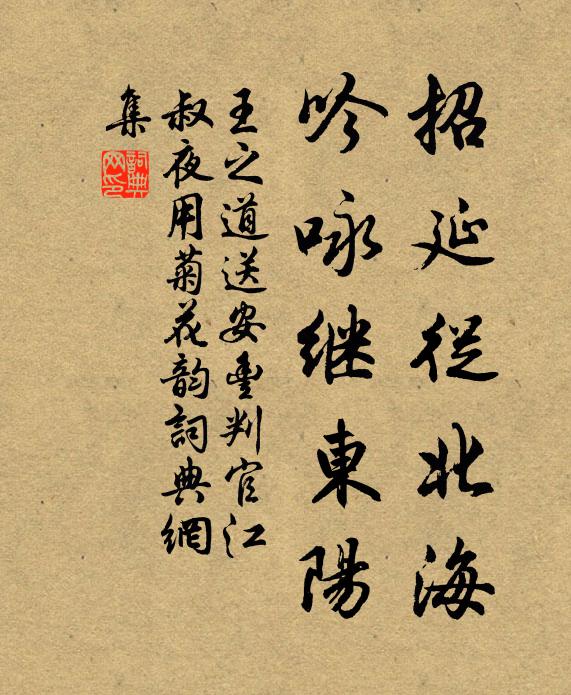 招延从北海
吟咏继東陽
王之道送安豊判官江
叔夜用菊花韵詞典網
集
詞典
网印